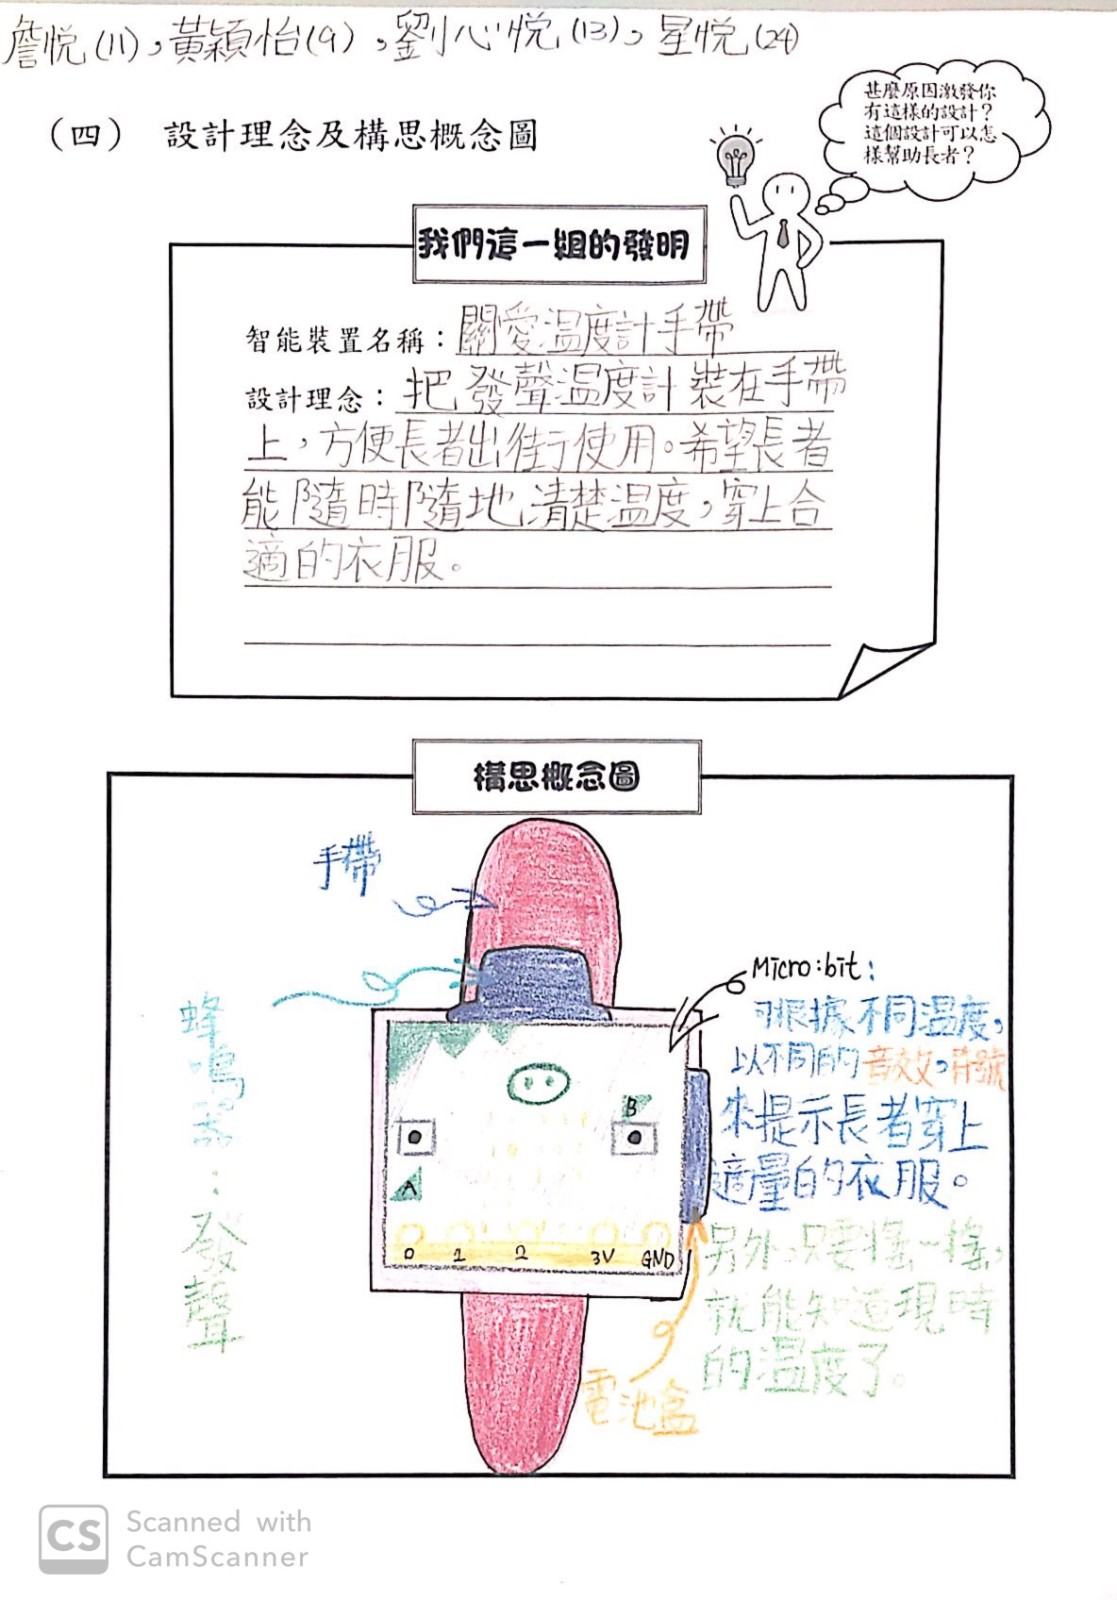 詹悦(11),黃穎怡(9),劉心悦(13),星悦(24)
甚麼原因激發你
有這樣的設計?
這個設計可以怎
樣幫助長者?
(四) 設計理念及構思概念圖
我們這一組的發明
智能裝置名稱:關愛温度計手帶
設計理念:把發聲温度計裝在手帶
上,方便長者出街行使用。希望長者
能隨時隨地清楚温度,穿上合
適的衣服。
構思概念圖
手帶
Micro:bit:
可根據不同温度,
以不同的音效。符號
來提示長者穿上
適量的衣服。
另外,只要搖一搖,
就能知道現時
的温度了。
蜂鳴器:發聲
B
A
0 1 2 3V GND
電池盒
CS Scanned with
CamScanner